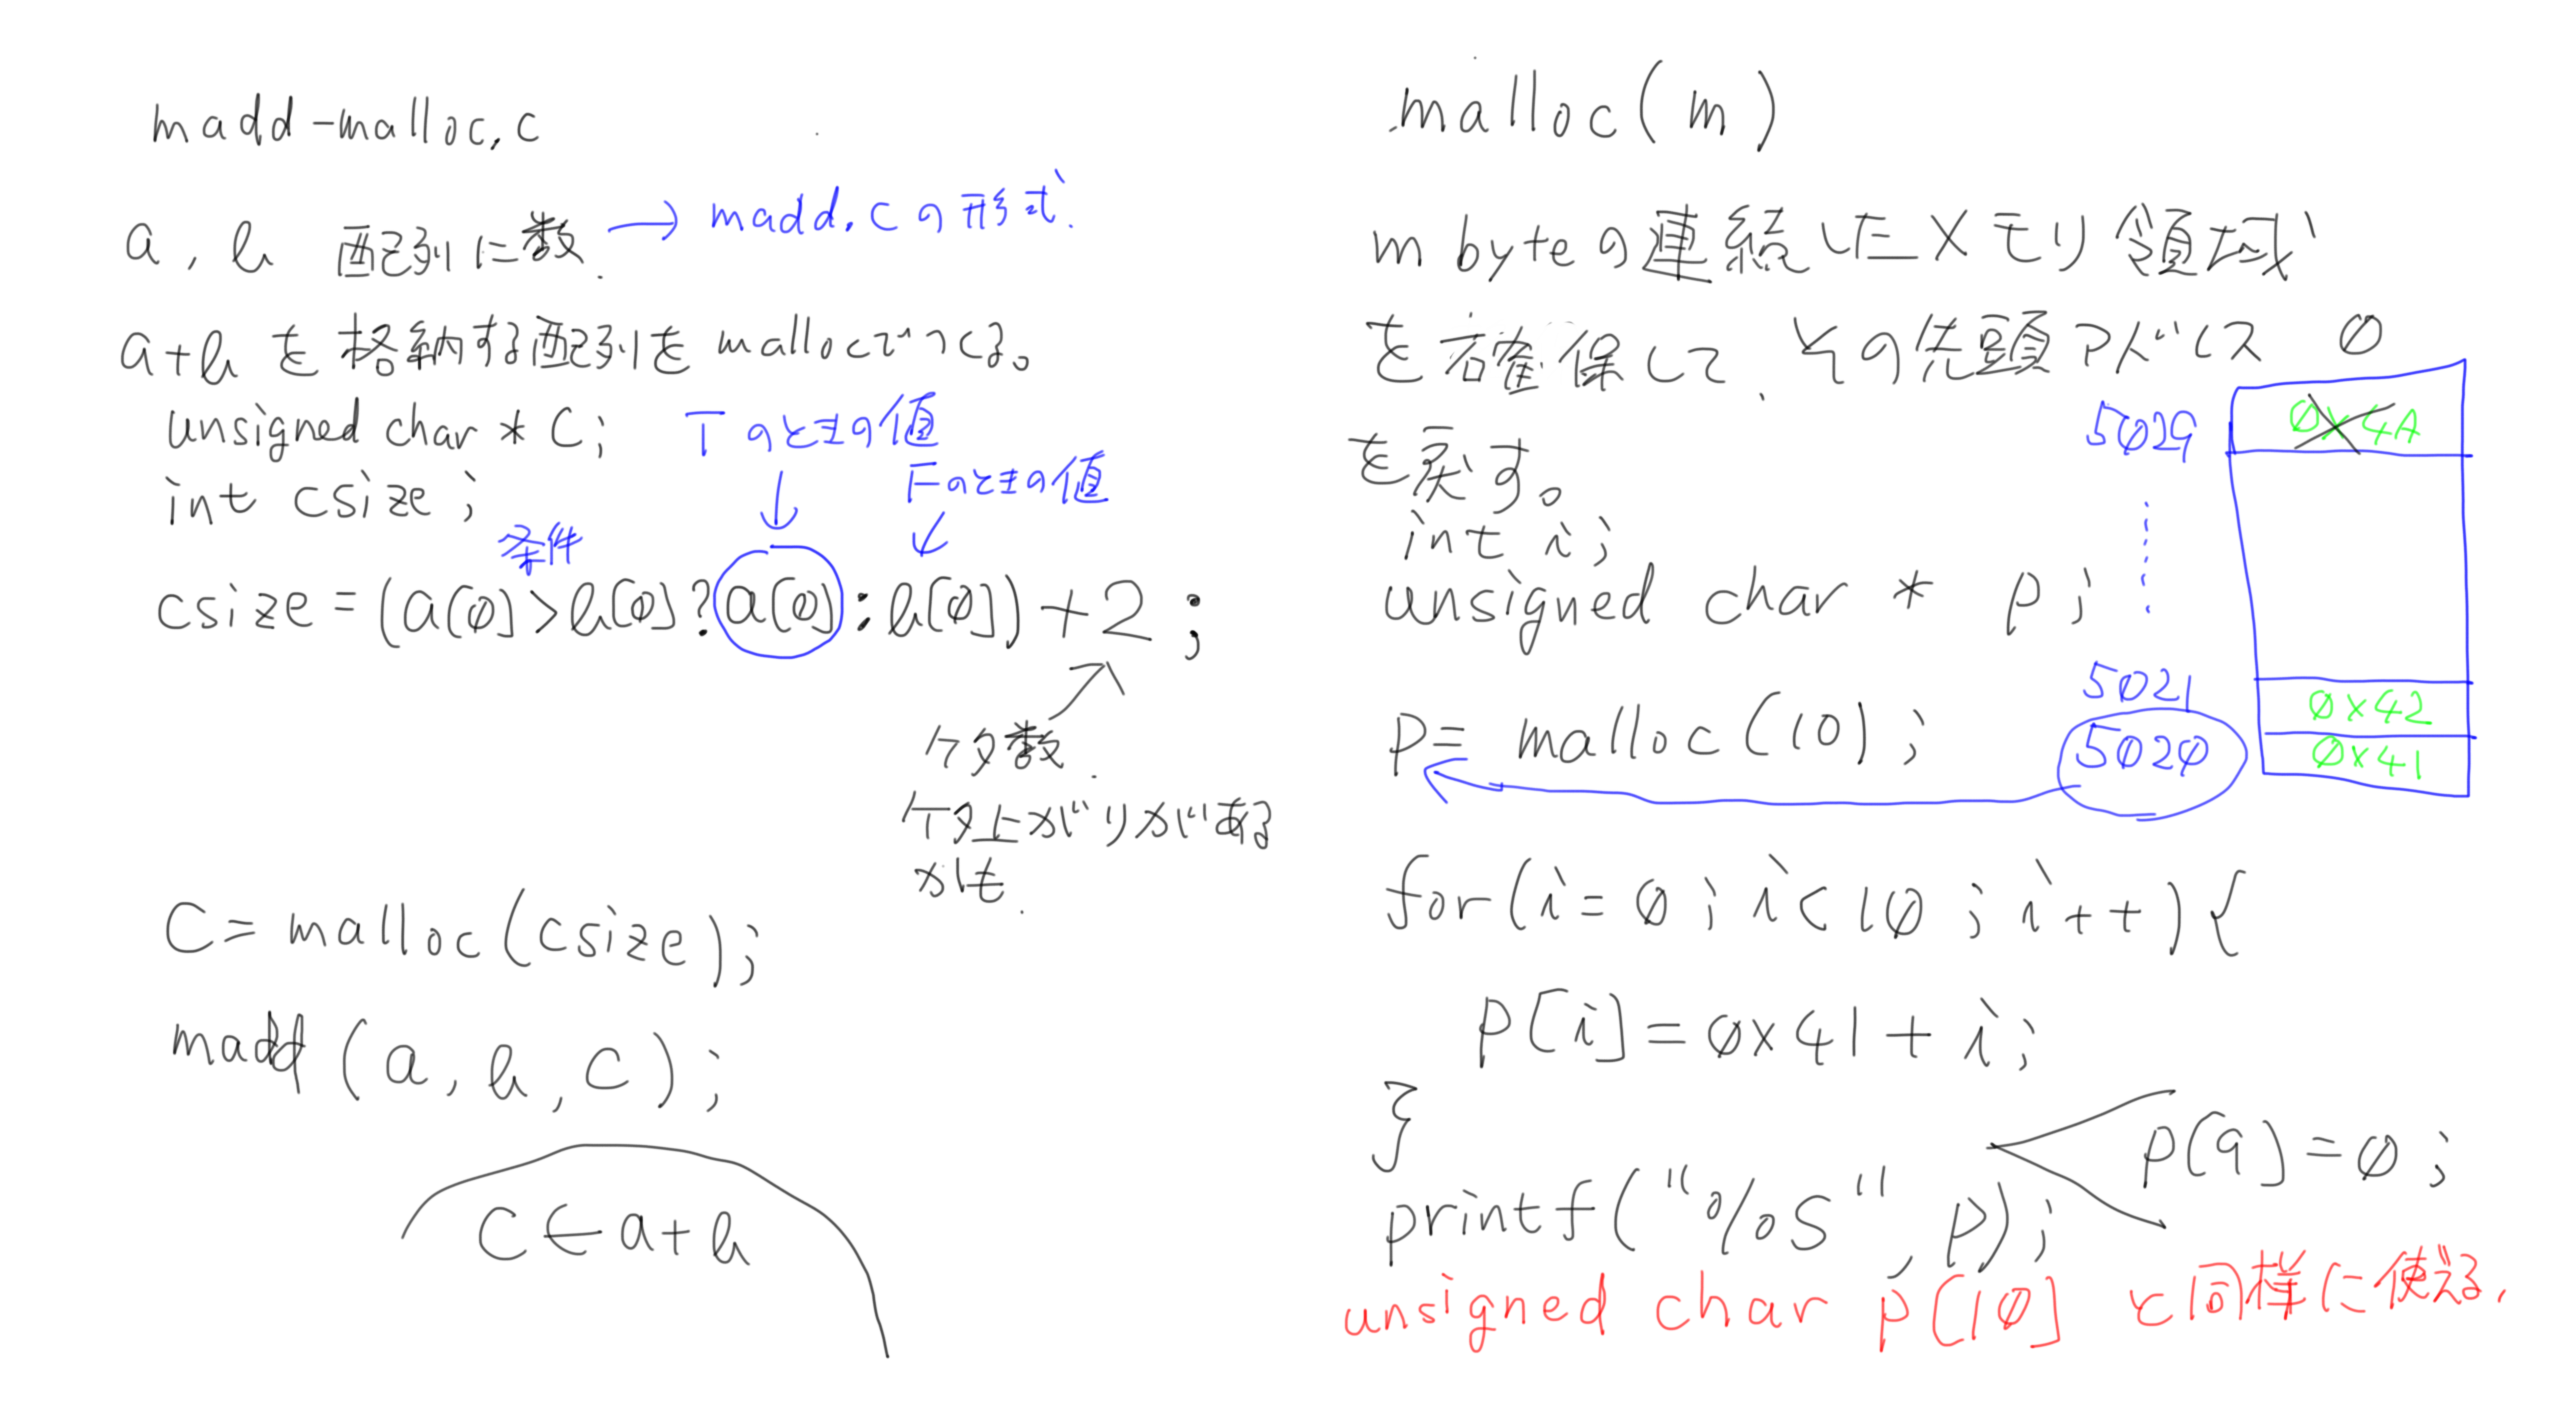 madd-malloc.c
a, b 配列に数. → madd.cの形式.
a+b を格納する配列をmallocでつくる。
unsigned char * c;
int csize;
Tのときの値
Fのときの値
条件
csize = (a[0]>b[0]?a[0]:b[0])+2;
ケタ数.
ケタ上がりがある
かも.
c = malloc(csize);
madd(a, b, c);
c ← a+b
malloc(m)
m byteの連続したメモリ領域
を確保して、その先頭アドレス
を戻す。
int i;
unsigned char * p;
p = malloc(10);
0
5029 0x4A
5021 0x42
5020 0x41
for(i=0; i<10; i++){
p[i]=0x41+i;
}
p[9]=0;
printf("%s", p);
unsigned char p[10] と同様に使える.